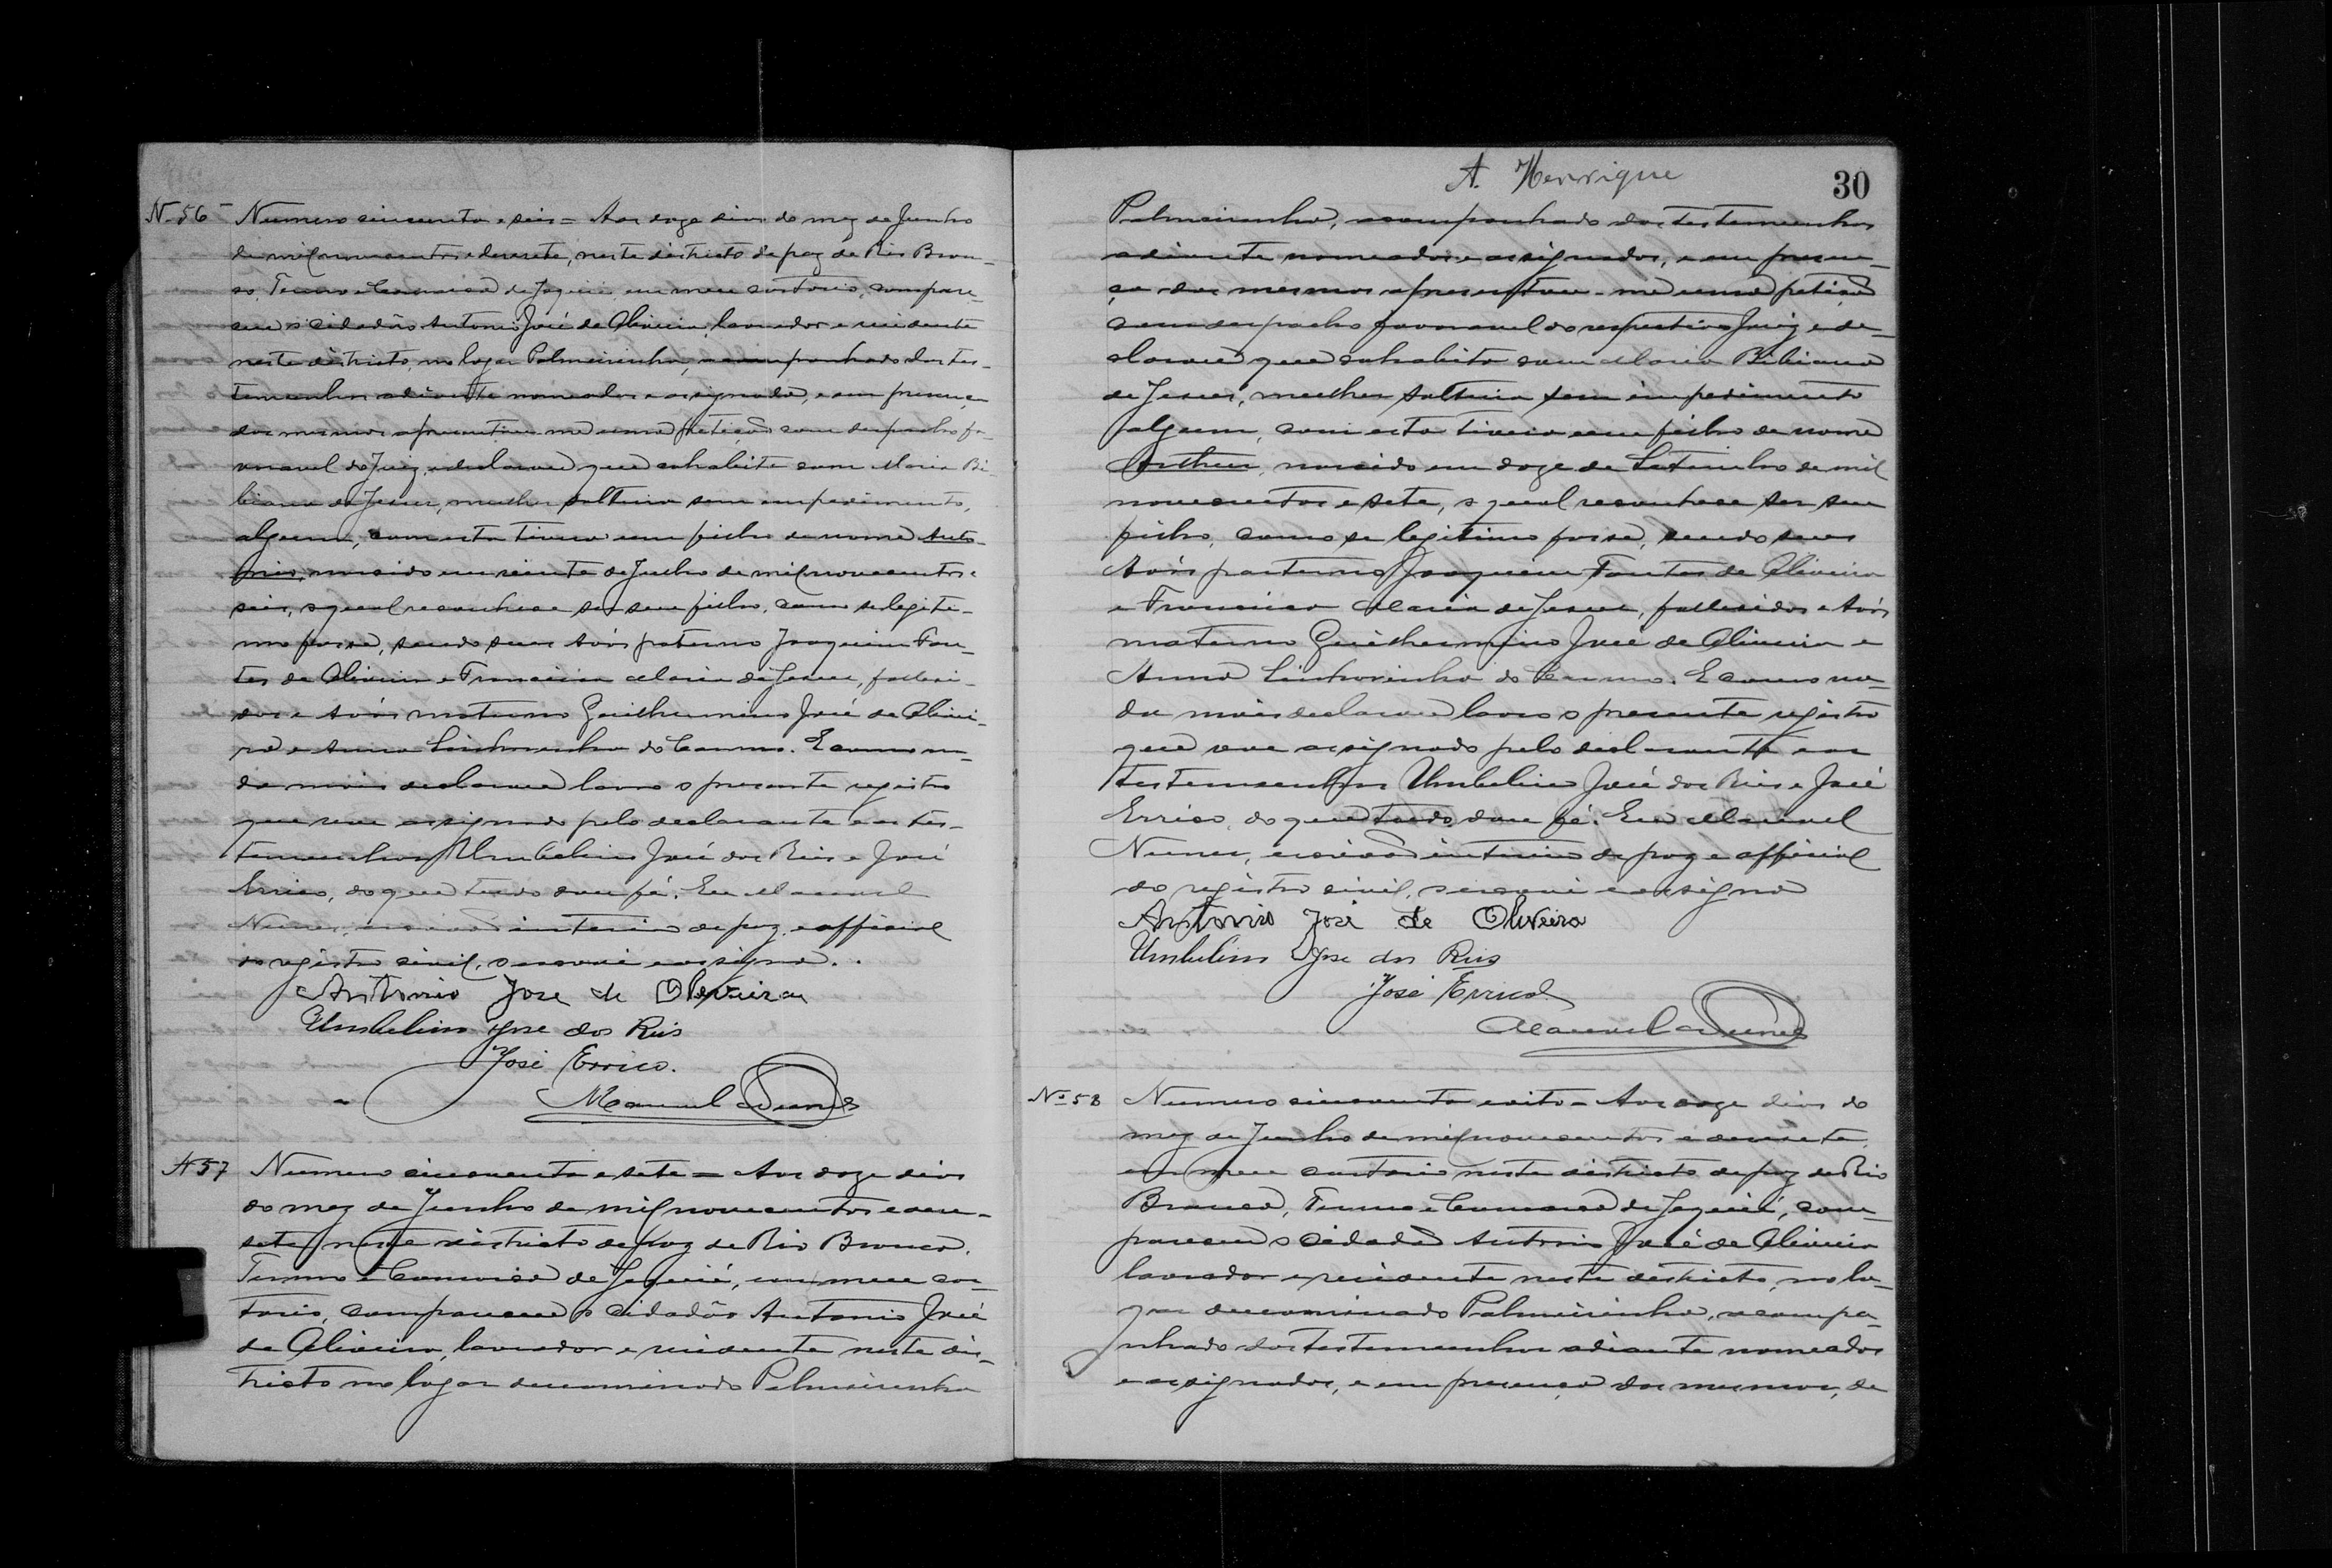 N. 56 Numero cincoenta e seis = Aos doze dias do mez de Junho
de mil novecentos e dezesete, neste districto de paz de Rio Bran-
co, Termo e Comarca de Jequié, em meu cartorio, compare-
ceu o cidadão Antonio José de Oliveira, lavrador e residente
neste districto, no logar Palmeirinha, acompanhado das tes-
temunhas adiante nomeadas e assignadas, e em presença
das mesmas apresentou-me uma petição com despacho fa-
voravel do Juiz, e declarou que cohabita com Maria Bi-
biana de Jesus, mulher solteira sem impedimento,
algum, com esta tivera um filho de nome Anto-
nio, nascido em vinte de Julho de mil novecentos e
seis, o qual reconhece ser seu filho, como se legiti-
mo fosse, sendo seus Avós paterno Joaquim Fon-
tes de Oliveira e Francisca Maria de Jesus, falleci-
dos e Avós materno Guilhermino José de Olivei-
ra e Anna Sinhorinha do Carmo. E como na-
da mais declarou lavro o presente registro
que vae assignado pelo declarante e as tes-
temunhas Umbelino José dos Reis e José
Errico, do que tudo dou fé. Eu Manuel
Nunes, escrivão interino de paz e official
do registro civil, o escrevi e assigno.
Antonio José de Oliveira
Umbelino José dos Reis
José Errico.
Manuel Nunes
N 57 Numero cincoenta e sete = Aos doze dias
do mez de Junho de mil novecentos e deze-
sete, neste districto de paz de Rio Branco,
Termo e Comarca de Jequié, em meu car-
torio, compareceu o cidadão Antonio José
de Oliveira, lavrador e residente neste dis-
tricto no logar denominado Palmeirinha
A. Henrique
30
Palmeirinha, acompanhado das testemunhas
adiante nomeadas e assignadas, e em presen-
ça das mesmas apresentou-me uma petição
com despacho favoravel do respectivo Juiz e de-
clarou que cohabita com Maria Bibiana
de Jesus, mulher solteira sem impedimento
algum, com esta tivera um filho de nome
Arthur, nascido em doze de Setembro de mil
novecentos e sete, o qual reconhece ser seu
filho, como se legitimo fosse, sendo seus
Avós paterno Joaquim Fontes de Oliveira
e Francisca Maria de Jesus, fallecidos e Avós
materno Guilhermino José de Oliveira e
Anna Sinhorinha do Carmo. E como na-
da mais declarou lavro o presente registro
que vae assignado pelo declarante e as
testemunhas Umbelino José dos Reis e José
Errico, do que tudo dou fé. Eu Manuel
Nunes, escrivão interino de paz e official
do registro civil, o escrevi e assigno
Antonio José de Oliveira
Umbelino José dos Reis
José Errico
Manuel Nunes
Nº 58 Numero cincoenta e oito = Aos doze dias do
mez de Junho de mil novecentos e dezesete,
em meu cartorio neste districto de paz de Rio
Branco, Termo e Comarca de Jequié, com-
pareceu o cidadão Antonio José de Oliveira
lavrador e residente neste districto, no lo-
gar denominado Palmeirinha, acompa-
nhado das testemunhas adiante nomeadas
e assignadas, e em presença das mesmas, de